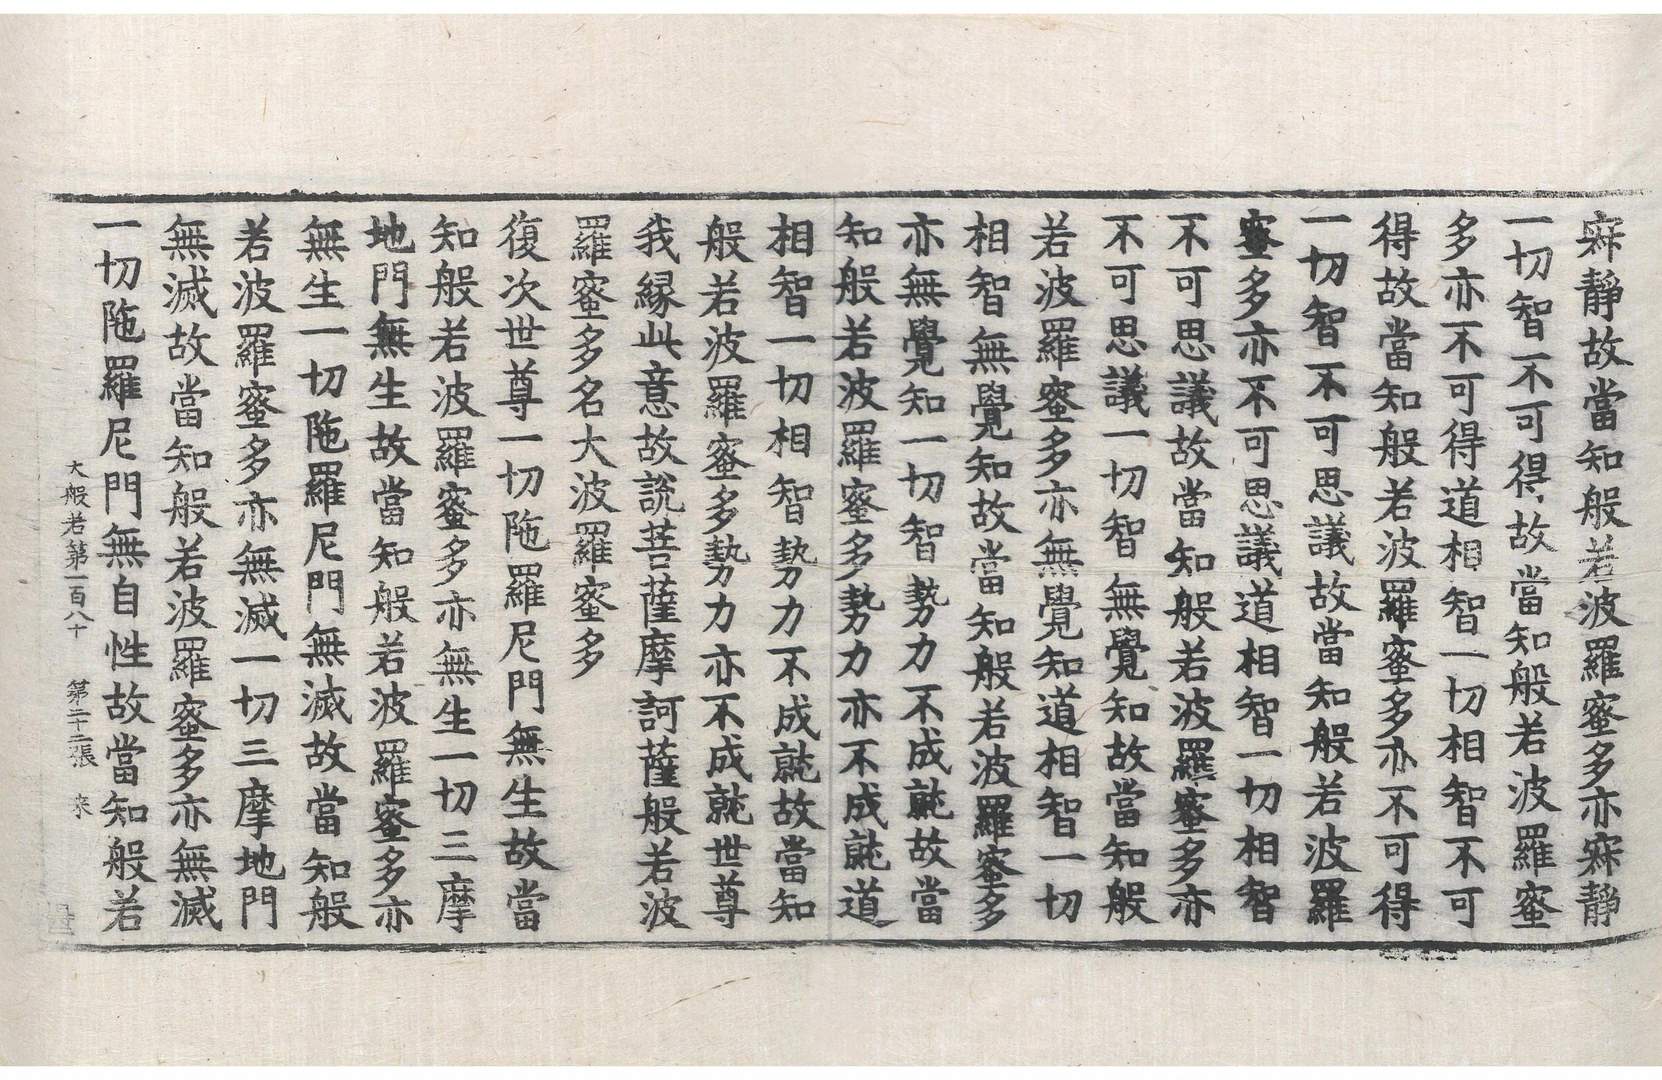 寂靜故當知般若波羅蜜多亦寂靜
一切智不可得故當知般若波羅蜜
多亦不可得道相智一切相智不可
得故當知般若波羅蜜多亦不可得
一切智不可思議故當知般若波羅
蜜多亦不可思議道相智一切相智
不可思議故當知般若波羅蜜多亦
不可思議一切智無覺知故當知般
若波羅蜜多亦無覺知道相智一切
相智無覺知故當知般若波羅蜜多
亦無覺知一切智勢力不成就故當
知般若波羅蜜多勢力亦不成就道
相智一切相智勢力不成就故當知
般若波羅蜜多勢力亦不成就世尊
我緣此意故說菩薩摩訶薩般若波
羅蜜多名大波羅蜜多
復次世尊一切陁羅尼門無生故當
知般若波羅蜜多亦無生一切三摩
地門無生故當知般若波羅蜜多亦
無生一切陁羅尼門無滅故當知般
若波羅蜜多亦無滅一切三摩地門
無滅故當知般若波羅蜜多亦無滅
一切陁羅尼門無自性故當知般若
大般若第一百八十 第二十二張 來